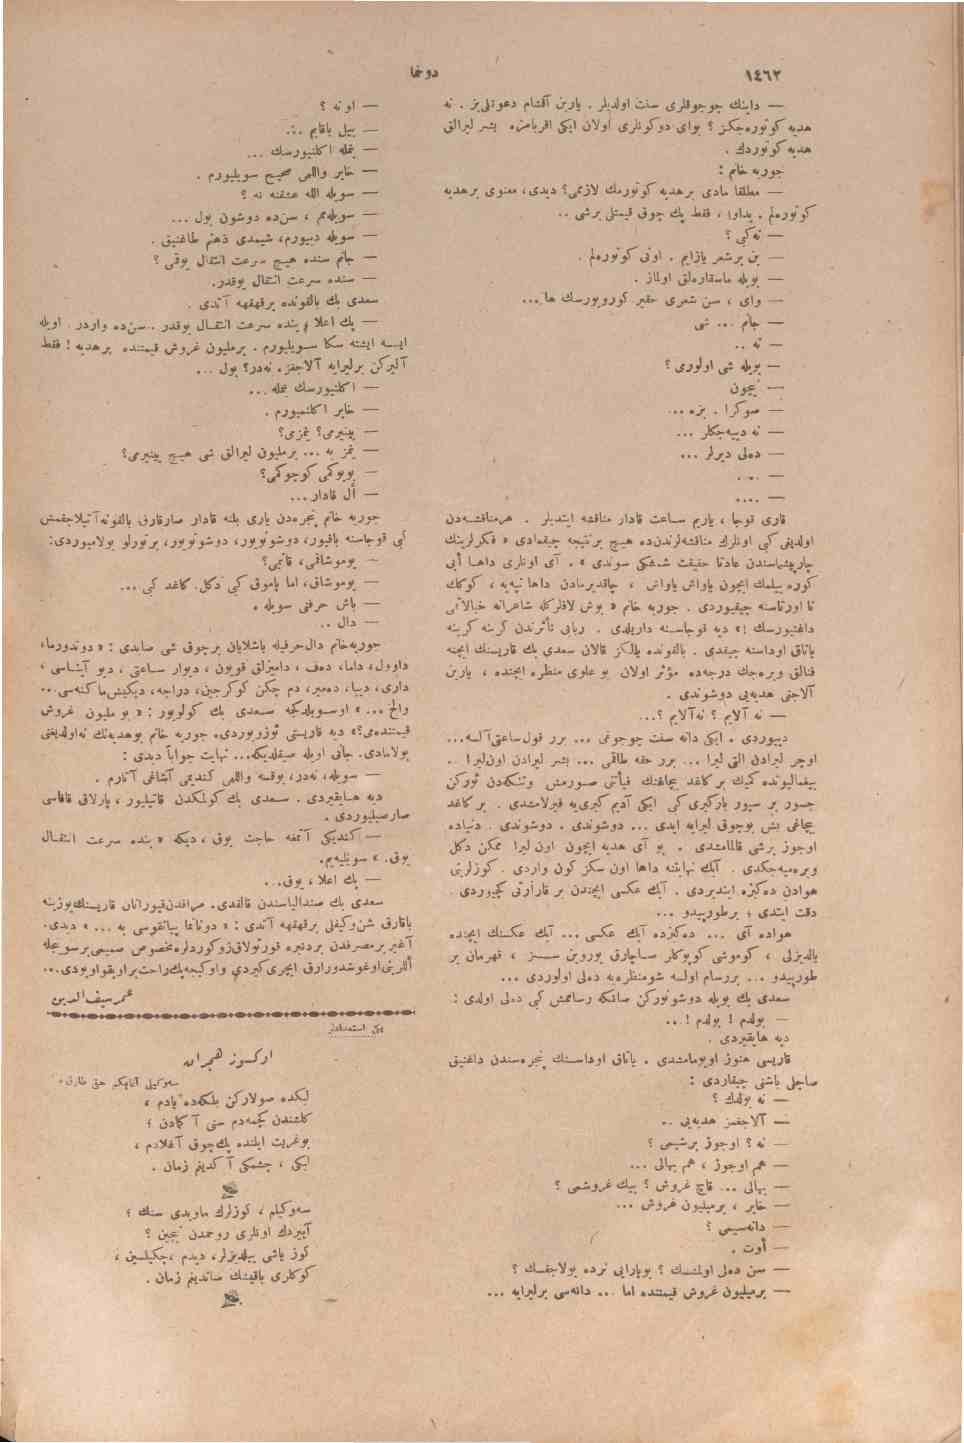 ١٤٦٢
دونما
— داينك جوجوقلری سنت اولديلر . يارين آقشام دعوتلی‌يز . نه
هديه كوتوره‌جكز ؟ بوای دوكونلری اولان ايكی اقربامزه بشر ليرالق
هديه كوتوردك .
جوريه خانم :
— مطلقا مادی برهديه كوتورمك لازممی؟ ديدی، معنوی برهديه
كوتوره‌لم . بداوا ، فقط پك چوق قيمتلی برشی ..
— نه‌كبی ؟
— بن برشعر يازايم . اونی كوتوره‌لم .
— بويله ماسقاره‌لق اولماز .
— وای ، سن شعری حقير كورويورسك ها...
— جانم ... شی
— نه ..
— بويله شی اولوری ؟
— نيچون
— صوكرا . بزه ...
— نه ديیه‌جكلر ...
— ده‌لی ديرلر ...
— ...
— ....
قاری قوجا ، ياريم ساعت قادار مناقشه ايتديلر . هرمناقشه‌دن
اولديغی كبی اونلرك مناقشه‌لرندن‌ده هيچ برنتيجه چيقمادی « فكرلرينك
چارپيشماسندن عادتا حقيقت شمشكی سوندی » . آی اونلری داها أيی
كوره بيلمك ايچون ياواش ياواش ، چاقديرمادن داها تپه‌يه ، كوكك
تا اورتاسنه چيقيوردی . جوريه خانم « بوش لاقلركله شاعرانه خيالاتمی
داغتيورسك !» ديه قوجاسنه داريلدی . ربابی تأثرندن كرينه كرينه
ياتاق اوداسنه چيقدی . بالقونده يالكز قالان سعدی بك قاريسنك ايچنه
فنالق ويره‌جك درجه‌ده مؤثر اولان بو علوی منظره ايچنده ، يارين
آلاجنی هديه‌يی دوشوندی .
— نه آلايم ؟ نه‌آلايم ؟...
ديیوردی . ايكی دانه سنت جوجوغی ... برر قول‌ساعتی‌آلسه...
اوچر ليرادن التی ليرا ... برر حقه طاقمی ... بشر ليرادن اون‌ليرا ..
بيغماليونده كميك بر كاغد بيچاغنك فيأتنی صورمش وتنكه‌دن ئوركن
جسور بر سپور باركيری كبی ايكی آديم كيری‌يه فيرلامشدی . بر كاغد
بيچاغی بش بوچوق ليرايه ايدی ... دوشوندی . دوشوندی . دنياده
اوجوز برشی قالمامشدی . بو آی هديه ايچون اون ليرا ممكن دكل
ويره‌ميه‌جكدی . آيك نهايتنه داها اون سكز كون واردی . كوزلرينی
هوادن ده‌كزه اينديردی . آيك عكسی ايچندن بر قارارتی كچيیوردی .
دقت ايتدی ؛ برطورپيدو ...
هواده آی ... ده‌كزده آيك عكسی ... آيك عكسنك ايچنده
يالديزلی ، كوموشی كوپوكلر ساچارق يوروين سسسز ، قهرمان بر
طورپيدو ... بررسام اولسه شومنظره‌يه ده‌لی اولوردی ...
سعدی بك بويله دوشونوركن صانكه رساممش كبی ده‌لی اولدی :
— بولدم ! بولدم ! ..
ديه هايقيردی .
قاريسی هنوز اويومامشدی . ياتاق اوداسنك پنجره‌سندن داغنيق
صاچلی باشنی چيقاردی :
— نه بولدك ؟
— آلاجغمز هديه‌يی ..
— نه ؟ اوجوز برشيمی ؟
— هم اوجوز ، هم بهالی ...
— بهالی ... قاچ غروش ؟ بيك غروشمی ؟
— خاير ، برميليون غروش ...
— دانه‌سيمی ؟
— أوت .
— سن ده‌لی اولمشسك ؟ بوپارايی نرده بولاجقسك ؟
— برميليون غروش قيمتنده اما ... دانه‌سی برليرايه ...
— او نه ؟
— بيل باقايم ...
— بنمله اكلنيورسك ...
— خاير واللهی صحيح سويليورم .
— سويله الله عشقنه نه ؟
— سويله‌مم ، سن‌ده دوشون بول ...
— سويله ديیورم، شيمدی ذهنم طاغنيق .
— جانم سنده هيچ سرعت انتقال يوقمی ؟
— سنده سرعت انتقال يوقدر.
سعدی بك بالقونده برقهقهه آتدی .
— پك اعلا ! بنده سرعت انتقال يوقدر .. سن‌ده واردر . اويله
ايسه ايشته سكا سويليورم . برمليون غروش قيمتنده برهديه ! فقط
آليركن برليرايه آلاجغز. نه‌در؟ بول ...
— اكلنيورسك بنمله ...
— خاير اكلنميورم .
— يينيرمی؟ ينمزمی؟
— ينمز به ... برمليون ليرالق شی هيچ يينيرمی؟
— بويوكمی كوچوكمی؟
— أل قادار ...
جوريه خانم پنجره‌دن ياری بلنه قادار صارقارق بالقونه‌آتيلاجقمش
كبی قوجاسنه باقيور، دوشونويور، دوشونويور، برتورلو بولامييوردی:
— يوموشاقمی ، قاتيمی؟
— يوموشاق، اما پاموق كبی دكل. كاغد كبی ...
— باش حرفنی سويله .
— دال ..
جوريه‌خانم دال‌حرفيله باشلايان برچوق شی صايدی : « دوندورما،
داوول، داما، ده‌ف ، داميزلق قويون ، ديوار ساعتی ، ديو آيناسی ،
داری، ديبا، ده‌مير، دم چكن كوكرجين، دراجه، ديكيش‌ماكنه‌سی...
والخ ... » اوسويلدكجه سعدی بك كولويور : « بو مليون غروش
قيمتنده‌می؟» ديه قاريسنی ئوزويوردی. جوريه خانم بوهديه‌نك نه‌اولديغنی
بولامادی. جانی اويله صيقلديكه... نهايت جواباً ديدی :
— سويله، نه‌در، يوقسه واللهی كنديمی آشاغی آتارم .
ديه هايقيردی . سعدی بك كولمكدن قاتيليور ، پارلاق قافاسی
صارصيليوردی .
— كنديكی آتمغه حاجت يوق ، ديكه « بنده سرعت انتقال
يوق. » سويليه‌يم.
— پك اعلا ، يوق..
سعدی بك صندالياسندن قالقدی. مراقدن‌قيورانان قاريسنك‌يوزينه
باقارق شن‌وكيفلی برقهقهه آتدی : « دونانما پيانقوسی به ... » ديدی.
آغير برمصرفدن بردنبره قورتولاق‌زوكوردلره‌مخصوص صميمی‌برسوينجله
ألرينی‌اوغوشدورارق ايچری‌كيردی واوكيجه‌پك‌راحت‌براويقو‌اويودی...
عمر سيف الدين
يكی استعدادلر
اوكسوز هجران
سه‌وكيلی آتاپكم حقی طارق،
ليكده صولاركن بلكه‌ده يادم ،
كلشندن كچمه‌دم سنی آكمادن ؛
بوغربت ايلنده پك‌چوق آغلادم ،
ايكی ، چشمكی آكديغم زمان .
سه‌وكيلم ، كوزلرك ماويدی سنك ؛
آييردك اونلری روحمدن نيچين ؟
كوز ياشی ييلديزلر، ديدم ،چكيلسين ،
كوكلری باقيشك صانديغم زمان .